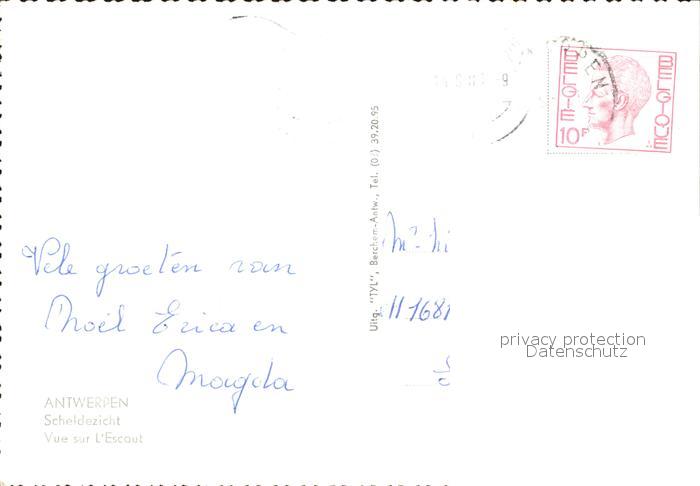 BELGIE
BELGIQUE
10F
Uitg. "TYL", Berchem-Antw., Tel. (03) 39.20.95
Vele groeten van
Noël Erica en
Magda
ANTWERPEN
Scheldezicht
Vue sur L'Escaut
privacy protection
Datenschutz